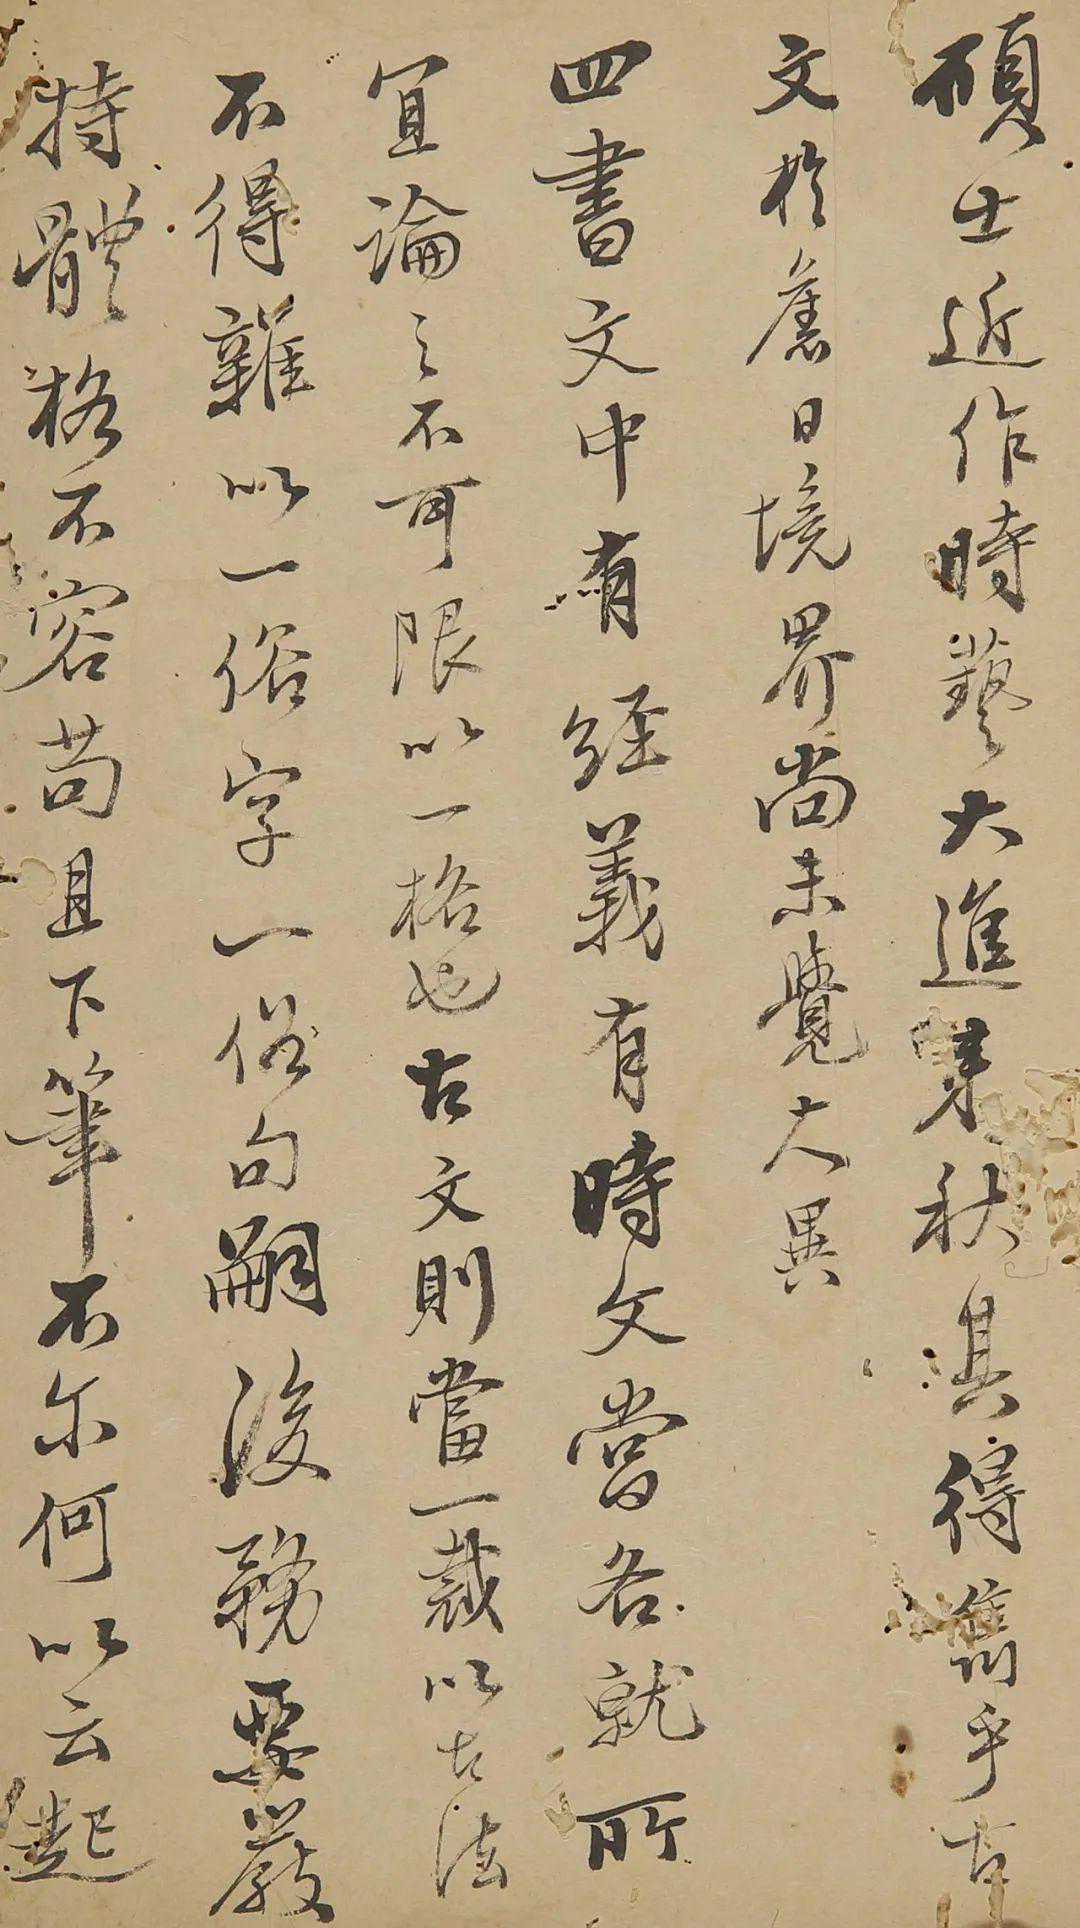 碩士近作時藝大進某秋其得雋乎古
文於舊日境界尚未覺大異
四書文中有經義有時文當各就所
宜論之不可限以一格也古文則當一裁以古法
不得雜以一俗字一俗句嗣後務要嚴
持體格不容苟且下筆不尔何以云起